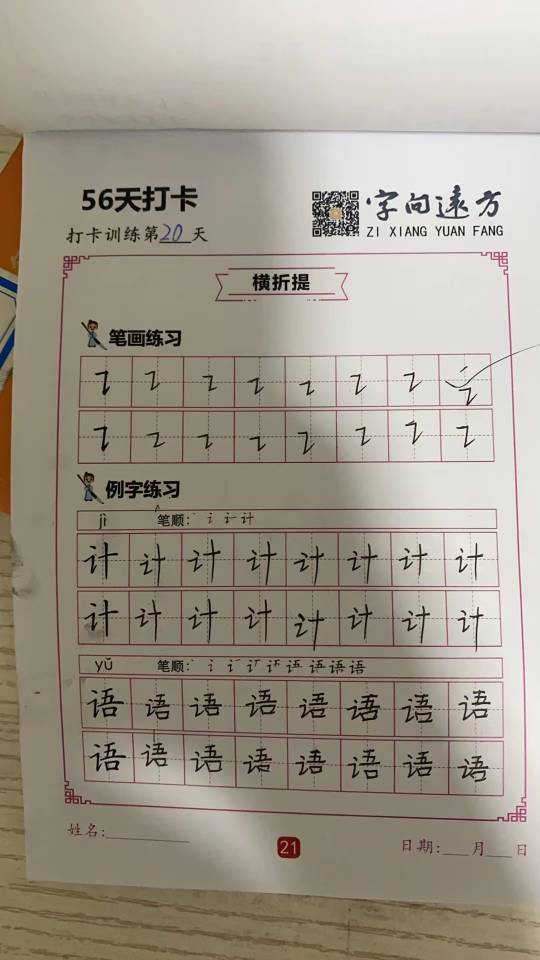 56天打卡
字向远方
打卡训练第20天
ZI XIANG YUAN FANG
横折提
笔画练习
例字练习
jì 笔顺: 丶 讠 计 计
计 计 计 计 计 计 计 计
计 计 计 计 计 计 计 计
yǔ 笔顺:
语 语 语 语 语 语 语 语
语 语 语 语 语 语 语 语
姓名:
21
日期: 月 日